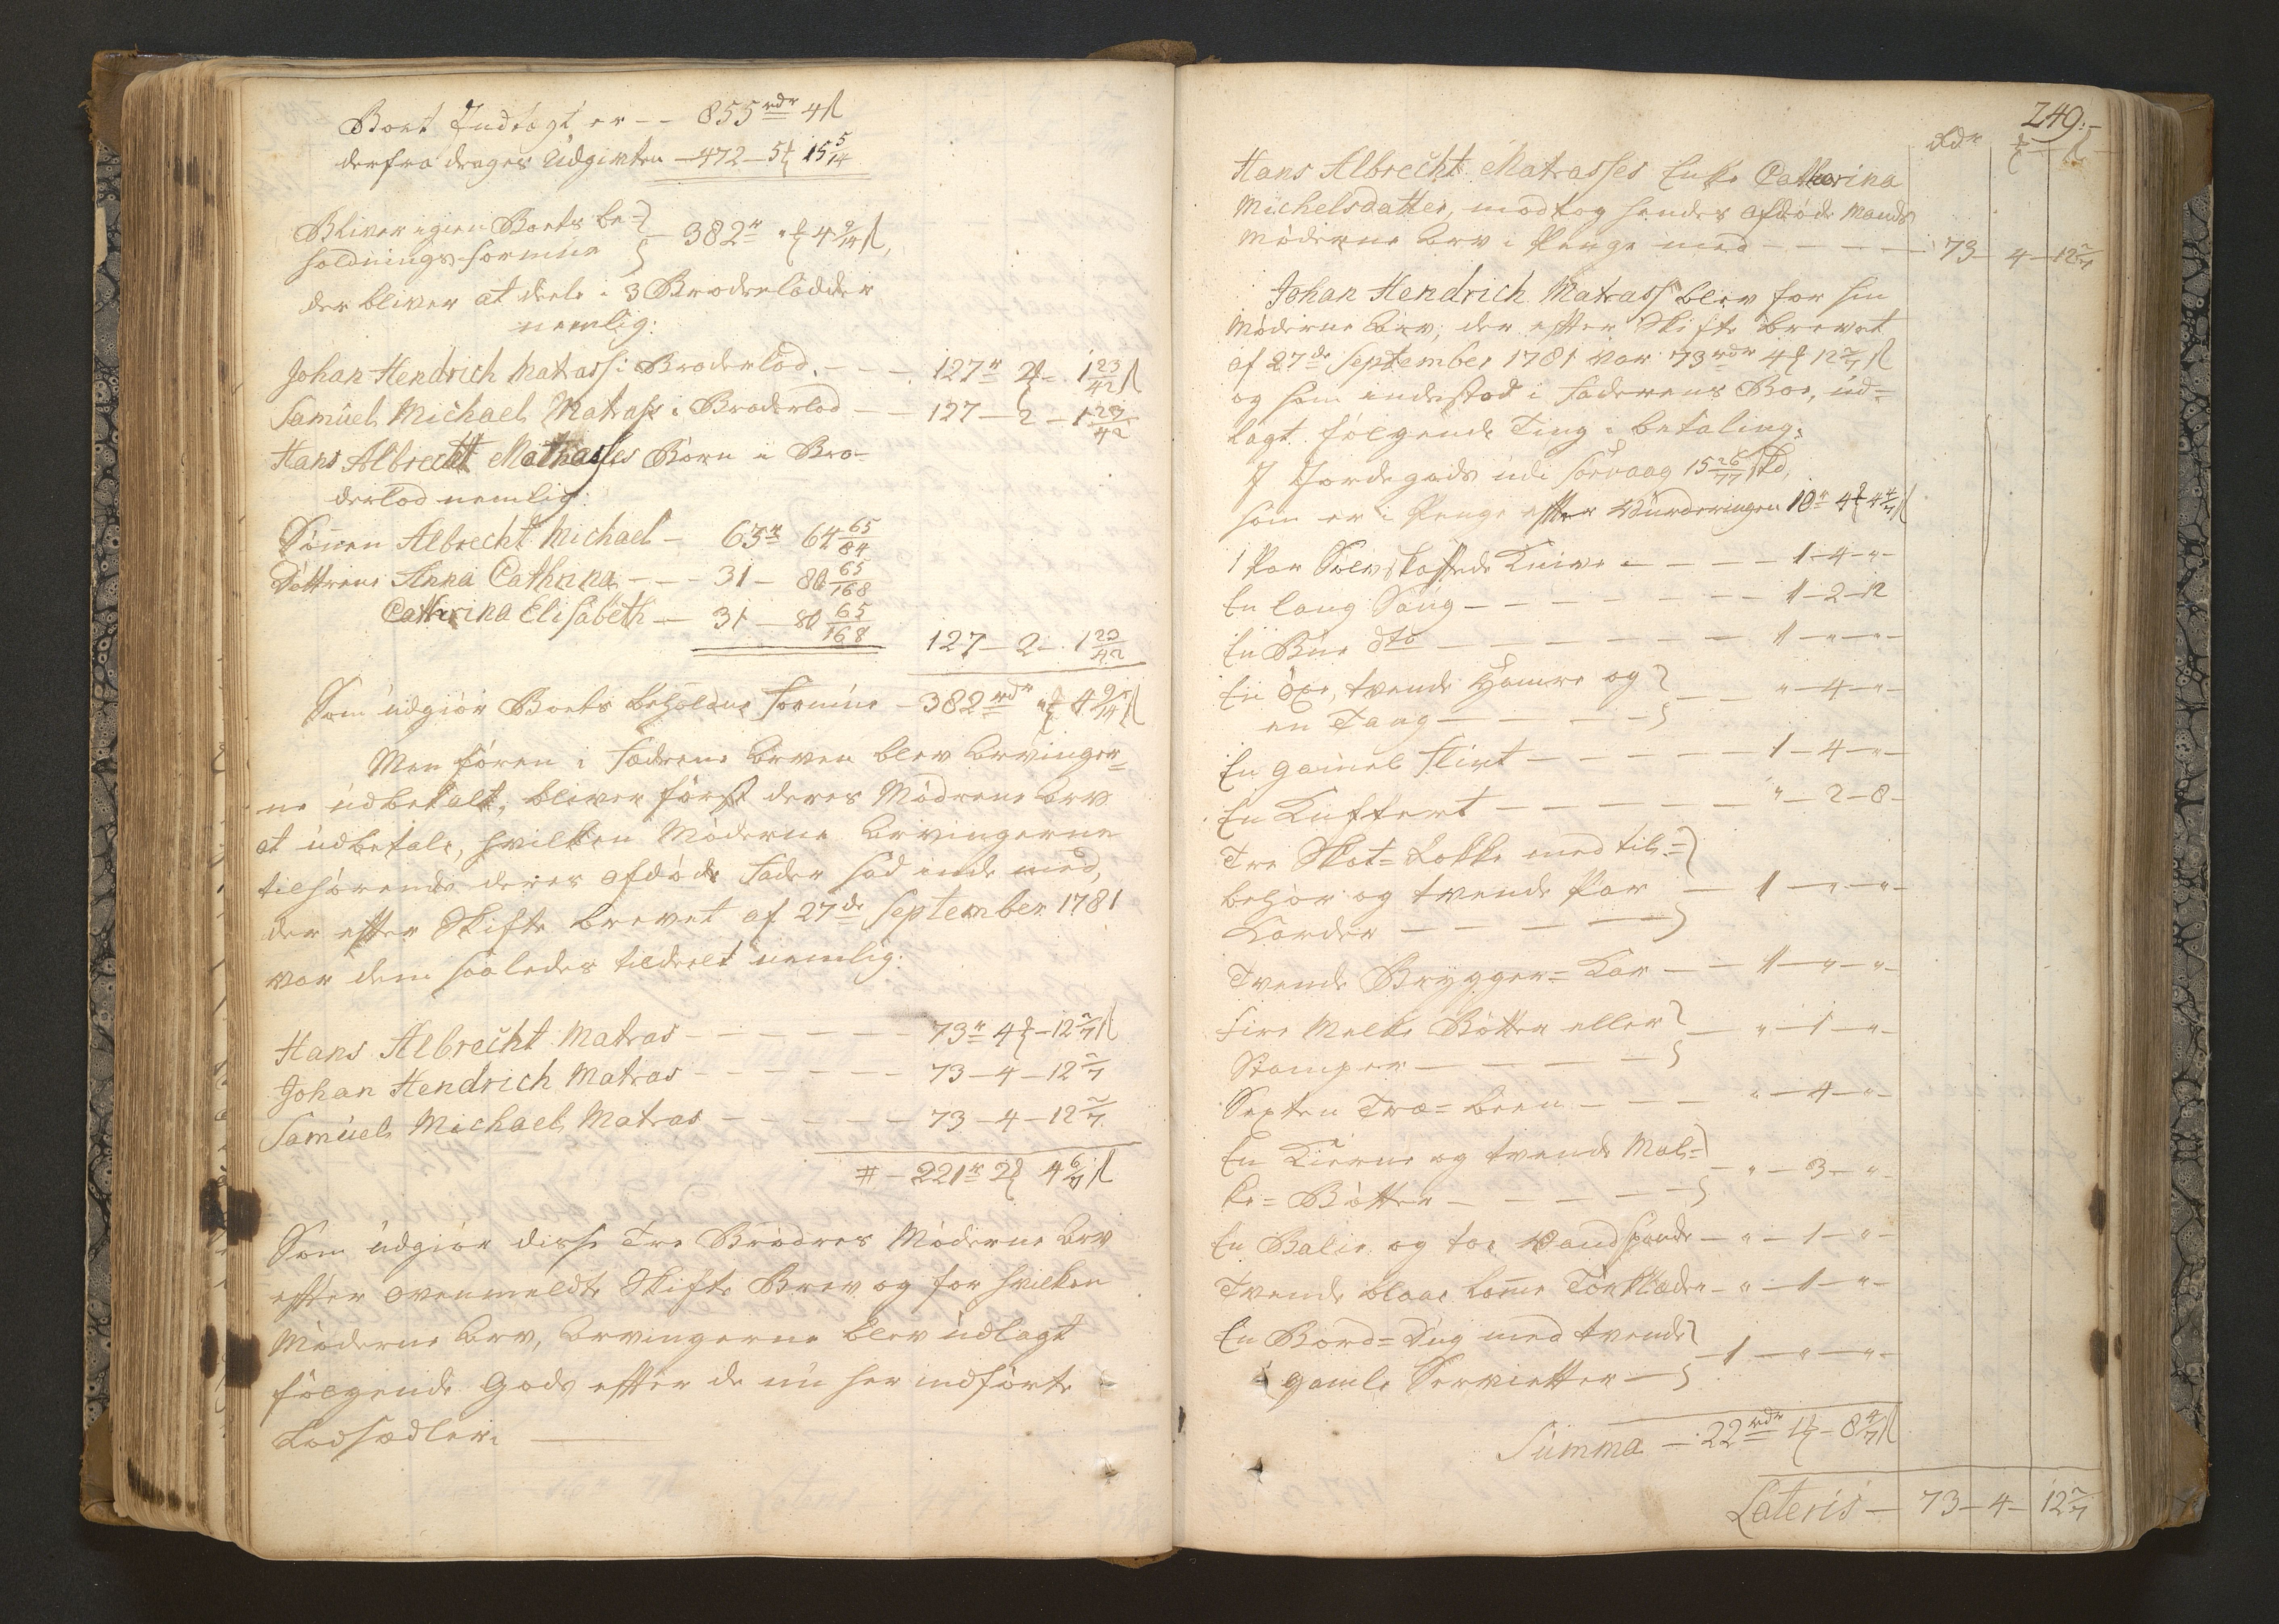 Boet Indtægt er -- 855 rdr 4 ß
derfra drages Udgivten - 472 - 5 ₰ 15 5/14
Bliver igien Boets be=
holdnings formue - 382 r „ ₰ 4 9/14 ß,
der bliver at deele i 3 Broderlodder
nemlig:
Johan Hendrich Matras i Broderlod. - - - 127 r 2 ₰ - 1 23/42 ß
Samúel Michael Matras i Broderlod - - 127 - 2 - 1 23/42
Hans Albrecht Mathasses Børn i Bro-
derlod nemlig:
Sønnen Albrecht Michael - 63 r 64 65/84
Døttrene Anna Cathrina - - - 31 - 80 65/168
Cathrina Elisabeth - - 31 - 80 65/168
127 - 2 - 1 23/42
Som udgiør Boets beholdne formúe - 382 rdr „ ₰ 4 9/14 ß
Men førend Fædrene Arven blev Arvinger=
ne udbetalt, bliver først deres Mødrene Arv
at udbetale, hvilken Møderne Arvingerne
tilhørende deres afdøde Fader sad inde med,
der efter Skifte brevet af 27 de September 1781
var dem saaledes tildeelt nemlig:
Hans Albrecht Matras - - - - - - 73 r 4 ₰ - 12 2/7 ß
Johan Hendrich Matras - - - - - - 73 - 4 - 12 2/7
Samúel Michael Matras - - - - - 73 - 4 - 12 2/7
# - 221 r 2 ₰ 4 6/7 ß
Som udgiør disse Tre Brødres Møderne Arv
efter ovenmeldte Skifte Brev og for hvilken
Møderne Arv, Arvingerne blev udlagt
følgende Gods efter de nú her indførte
Lodsædler:
249:-
Rdr ₰ ß
Hans Albrecht Matrasses Enke Catharina
Michelsdatter, modtog hendes afdøde Mands
Møderne Arv i Penge med - - - - - 73 - 4 - 12 2/7
Johan Hendrich Matrass blev for sin
Møderne Arv, der efter Skifte brevet
af 27 de September 1781 var 73 rdr 4 ₰ 12 2/7 ß
og som indestod i Faderens Boe, ud=
lagt følgende Ting i betaling:
I Jordegods udi Sørvaag 15 26/77
som er i Penge efter Vúrderingen 10 r 4 ₰ 4 4/7 ß
1 Par Sølvskaftede Knive - - - - - 1 - 4 - „ -
En lang Saug - - - - - - - 1 - 2 - 12
En Bue dto - - - - - - - 1 - „ - „ -
En Øxe, tvende Hamre og
en Tang - - - - - - „ - 4 - „ -
En gamel Flint - - - - - 1 - 4 - „ -
En Kuffert - - - - - - „ - 2 - 8 -
Tre Skot= Lokke med til=
behør og tvende Par
Karder - - - - - 1 - „ - „ -
Tvende Brygger= Kar - - 1 - „ - „ -
Fire Melke Bøtter eller
Stamper - - - - - „ - 1 - „ -
Sexten Træ= - - - „ - 4 - „ -
En Kierne og tvende Mal=
ke= Bøtter - - - - - „ - 3 - „ -
En Balie og toe Vandspande - „ - 1 - „ -
Tvende blaae Tørklæder - „ - 1 - „ -
En Bord= Dug med tvende
gamle Servietter - 1 - „ - „ -
Summa - 22 rdr 1 ₰ - 8 4/7 ß
Lateris - 73 - 4 - 12 2/7